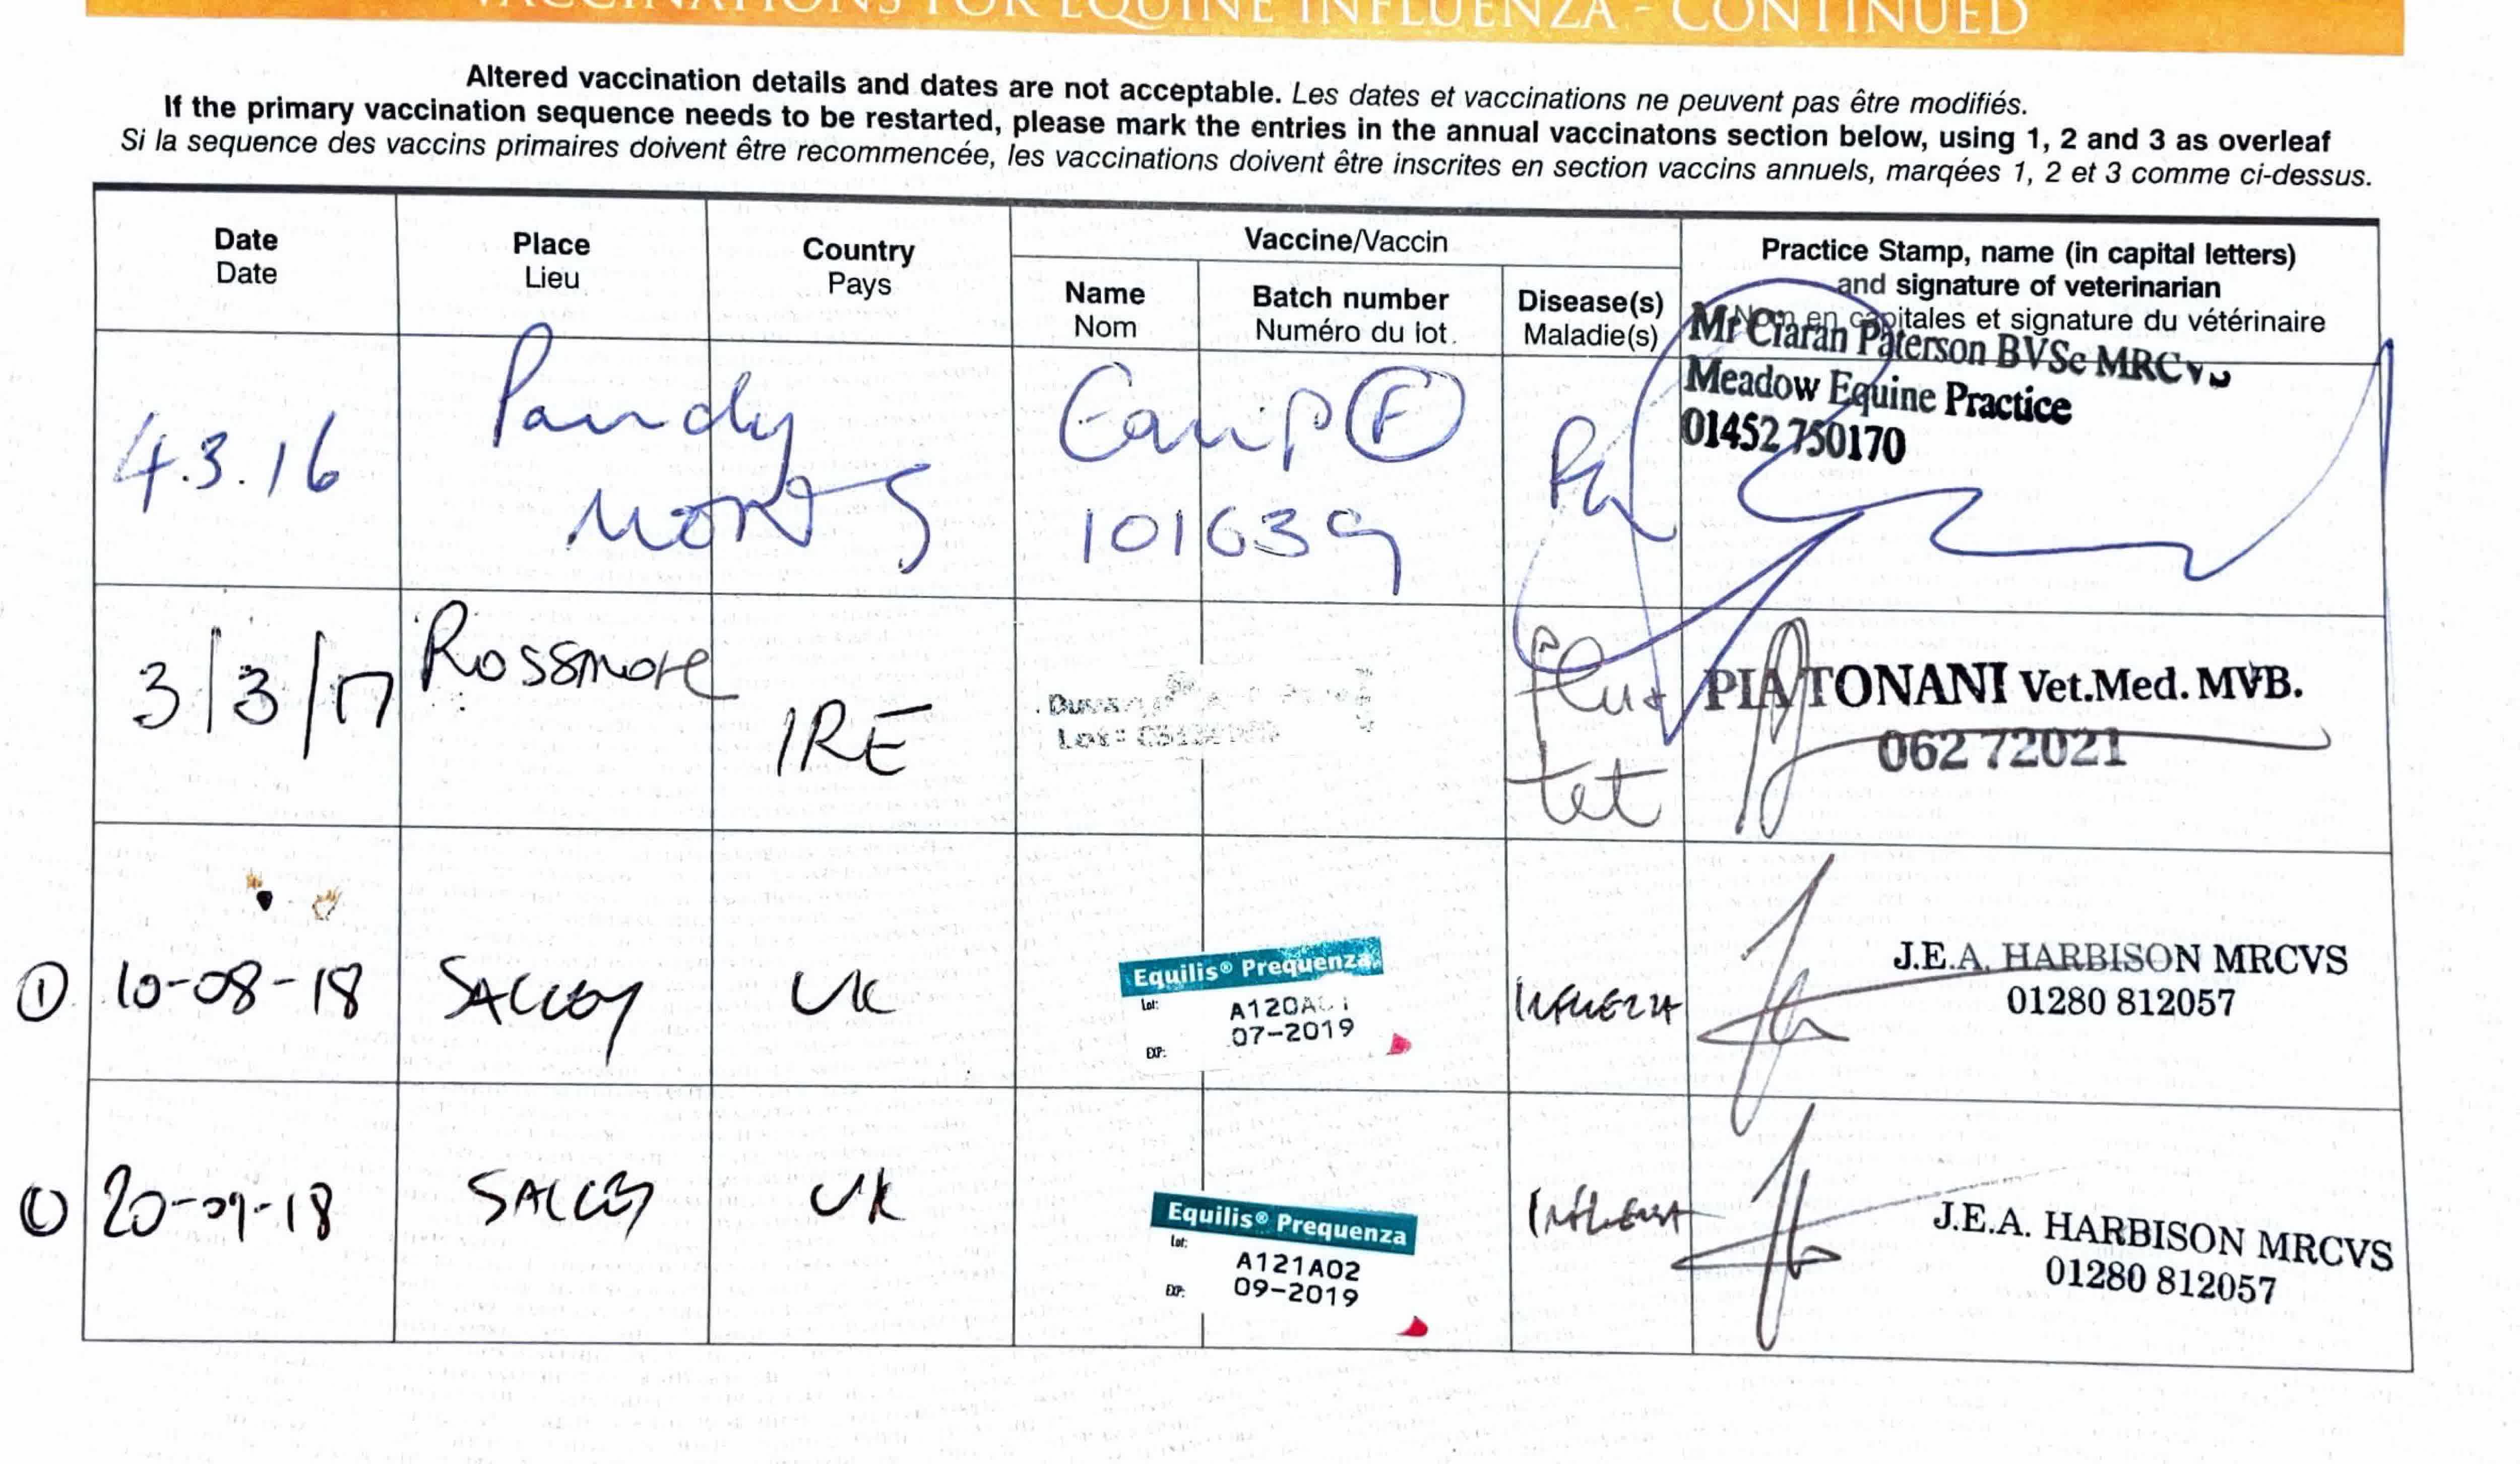 VACCINATIONS FOR EQUINE INFLUENZA - CONTINUED
Altered vaccination details and dates are not acceptable. Les dates et vaccinations ne peuvent pas être modifiés.
If the primary vaccination sequence needs to be restarted, please mark the entries in the annual vaccinatons section below, using 1, 2 and 3 as overleaf
Si la sequence des vaccins primaires doivent être recommencée, les vaccinations doivent être inscrites en section vaccins annuels, marqées 1, 2 et 3 comme ci-dessus.
Date
Date
Place
Lieu
Country
Pays
Vaccine/Vaccin
Name
Nom
Batch number
Numéro du lot.
Disease(s)
Maladie(s)
Practice Stamp, name (in capital letters)
and signature of veterinarian
Nom en capitales et signature du vétérinaire
4.3.16
Pandy
Equip F
101639
Mr Ciaran Paterson BVSc MRCVS
Meadow Equine Practice
01452 750170
3/3/17
Rossmore
IRE
Lot:
Flu +
tet
PIA TONANI Vet.Med. MVB.
062 72021
1 10-08-18
SALCEY
UK
Equilis® Prequenza
Lot:
07-2019
EXP:
INFLUENZA
J.E.A. HARBISON MRCVS
01280 812057
20-09-18
SALCEY
UK
Equilis® Prequenza
Lot:
A121A02
EXP:
09-2019
INFLUENZA
J.E.A. HARBISON MRCVS
01280 812057